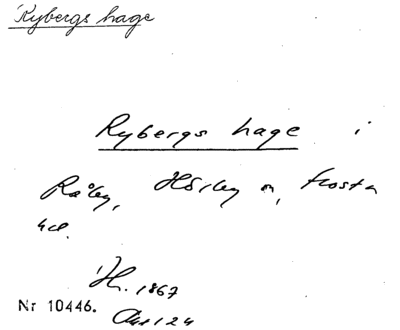 Rybergs hage
Rybergs hage i
Råby, Hörby sn, Frosta
hd.
H. 1867
Nr 10446. Akt 124